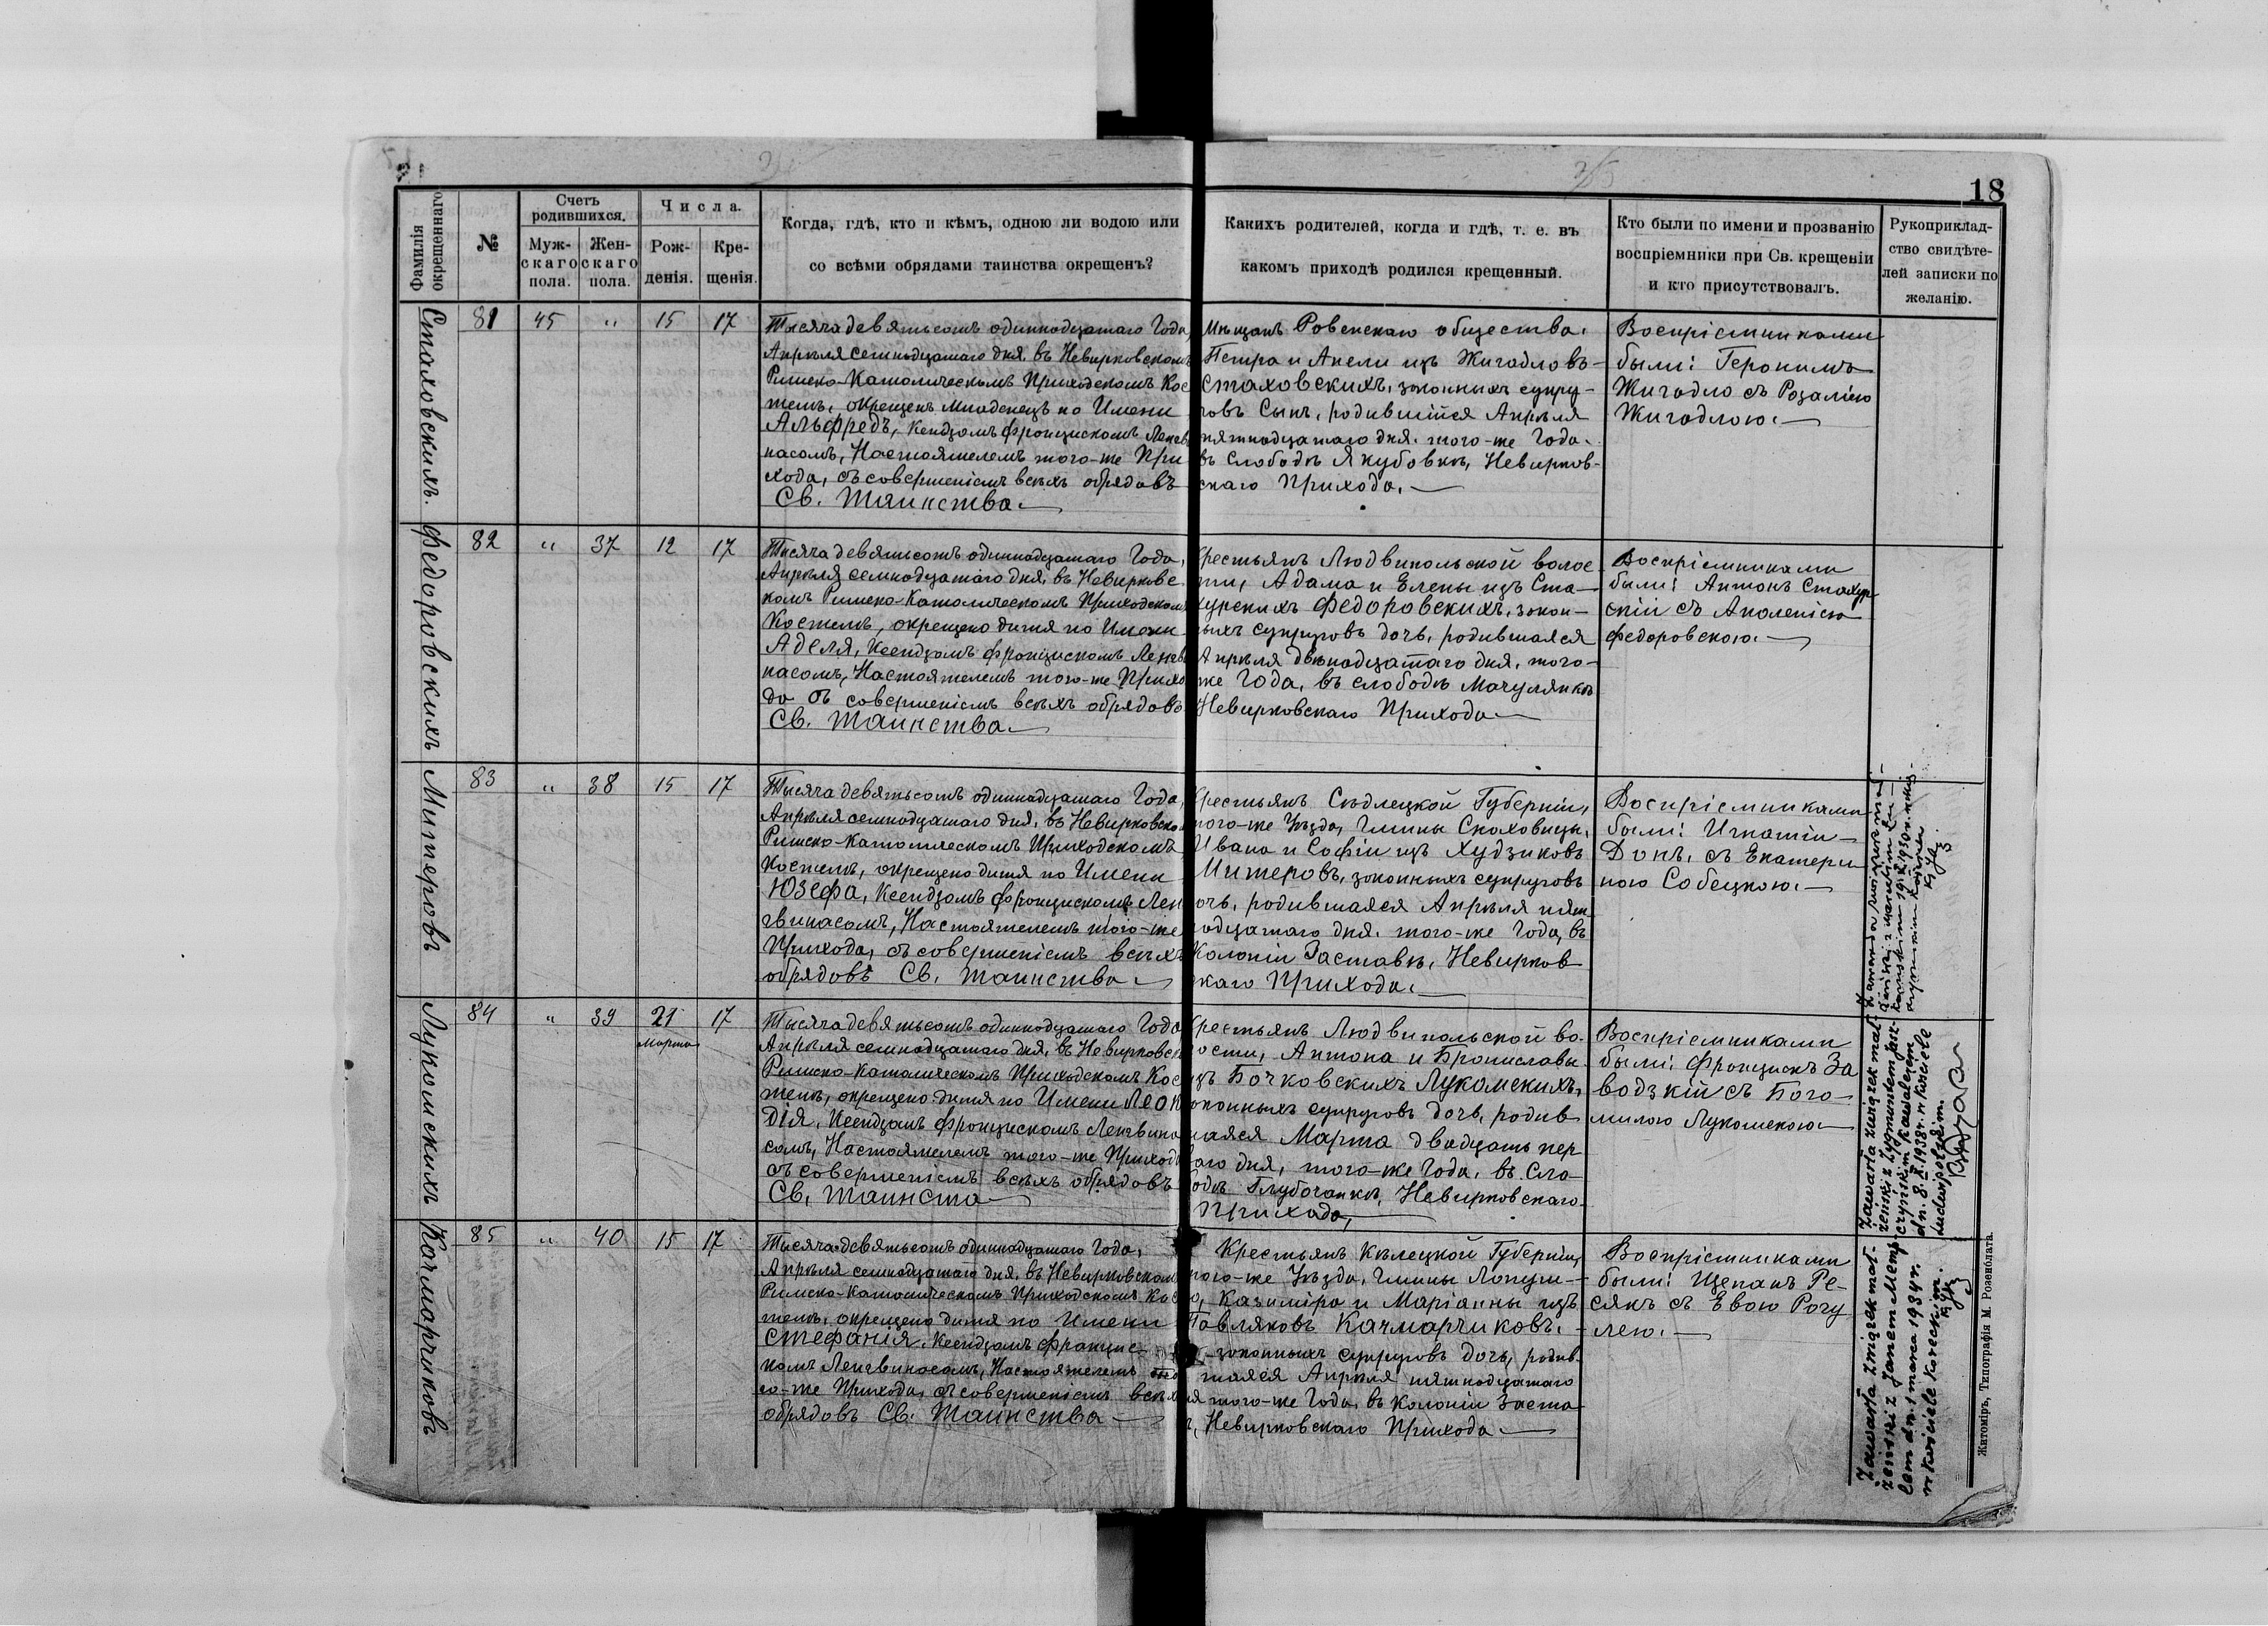 18
Фамилія окрещеннаго
№
Счетъ родившихся.
Мужскаго пола.
Женскаго пола.
Числа.
Рожденія.
Крещенія.
Когда, гдѣ, кто и кѣмъ, одною ли водою или
со всѣми обрядами таинства окрещенъ?
Какихъ родителей, когда и гдѣ, т. е. въ
какомъ приходѣ родился крещенный.
Кто были по имени и прозванію
воспріемники при Св. крещеніи
и кто присутствовалъ.
Рукоприклад-
ство свидѣте-
лей записки по
желанію.
Стаховскихъ.
81 45 " 15 17
Тысяча девятьсотъ одиннадцатаго Года,
Апрѣля семнадцатаго дня, въ Невирковскомъ
Римско-Католическомъ Приходскомъ Кос
телѣ, окрещенъ младенецъ по Имени
Альфредъ, Ксендзомъ Францискомъ Ленгв
насомъ, Настоятелемъ того-же При
хода, съ совершеніемъ всѣхъ обрядовъ
Св. Таинства.
Мѣщанъ Ровенскаго общества,
Петра и Анели изъ Жигадловъ-
Стаховскихъ, законныхъ супру-
говъ Сынъ, родившійся Апрѣля
пятнадцатаго дня, того-же Года,
въ Слободѣ Якубовкѣ, Невирков-
скаго Прихода.
Воспріемниками
были: Геронимъ
Жигадло съ Розаліею
Жигадлою.
Федоровскихъ
82 " 37 12 17
Тысяча девятьсотъ одиннадцатаго Года,
Апрѣля семнадцатаго дня, въ Невирковс
комъ Римско-Католическомъ Приходскомъ
Костелѣ, окрещено дитя по Имени
Аделя, Ксендзомъ Францискомъ Ленгв
насомъ, Настоятелемъ того-же Прихо
да съ совершеніемъ всѣхъ обрядовъ
Св. Таинства.
Крестьянъ Людвипольской волос
ти, Адама и Елены изъ Ста-
хурскихъ Федоровскихъ, закон-
ныхъ супруговъ дочь, родившаяся
Апрѣля двѣнадцатаго дня, того-
же Года, въ слободѣ Мочулянкѣ
Невирковскаго Прихода
Воспріемниками
были: Антонъ Стахур-
скій съ Аполеніею
Федоровскою.
Митеровъ
83 " 38 15 17
Тысяча девятьсотъ одиннадцатаго Года,
Апрѣля семнадцатаго дня, въ Невирковско
Римско-Католическомъ Приходскомъ
Костелѣ, окрещено дитя по Имени
Юзефа, Ксендзомъ Францискомъ Лен
гвинасомъ, Настоятелемъ того-же
Прихода, съ совершеніемъ всѣхъ
обрядовъ Св. Таинства.
Крестьянъ Сѣдлецкой Губерніи,
того-же Уѣзда, Гмины Скоховицы,
Ивана и Софіи изъ Худзиковъ
Митеровъ, законныхъ супруговъ
очь, родившаяся Апрѣля пят
адцатаго дня, того-же Года, въ
Колоніи Заставкѣ, Невирков
скаго Прихода.
Воспріемниками
были: Игнатій
Донъ, съ Екатери
ною Собецкою.
Лукомскихъ
84 " 39 21 Марта 17
Тысяча девятьсотъ одиннадцатаго Года
Апрѣля семнадцатаго дня, въ Невирковск
Римско-Католическомъ Приходскомъ Кос
телѣ, окрещено дитя по Имени Леок
дія, Ксендзомъ Францискомъ Ленгвина
сомъ, Настоятелемъ того-же Прихода
съ совершеніемъ всѣхъ обрядовъ
Св. Таинста
Крестьянъ Людвипольской во-
лости, Антона и Брониславы
изъ Бочковскихъ Лукомскихъ,
аконныхъ супруговъ дочь, родив
шаяся Марта двадцать пер
ваго дня, того-же Года, въ Сло-
бодѣ Глубочанкѣ, Невирковскаго
Прихода,
Воспріемниками
были: Францискъ За
водзкій съ Бого-
милою Лукомскою
Zawarła związek mał-
żeński z Zygmuntem
kawalerem
dn. 8.X.1938 r. w kościele
ludwipolskim.
Качмарчиковъ
85 " 40 15 17
Тысяча девятьсотъ одиннадцатаго Года,
Апрѣля семнадцатаго дня, въ Невирковском
Римско-Католическомъ Приходскомъ Кос
телѣ, окрещено дитя по Имени
Стефанія, Ксендзомъ Францис-
комъ Ленгвинасомъ, Настоятелемъ
го-же Прихода, съ совершеніемъ всѣх
обрядовъ Св. Таинства
Крестьянъ Кѣлецкой Губерніи,
того-же Уѣзда, Гмины Лопуш-
о, Казиміра и Маріанны изъ
Павляковъ Качмарчиковъ,
законныхъ супруговъ дочь, родив
шаяся Апрѣля пятнадцатаго
ня того-же Года, въ Колоніи Заста
, Невирковскаго Прихода
Воспріемниками
были: Щепанъ Ре-
сякъ съ Евою Рогу
лею.
Zawarła związek mał-
żeński z Janem
dn. 1 marca 1934 r.
w kościele koreckim.
Житоміръ, Типографія М. Розенблата.